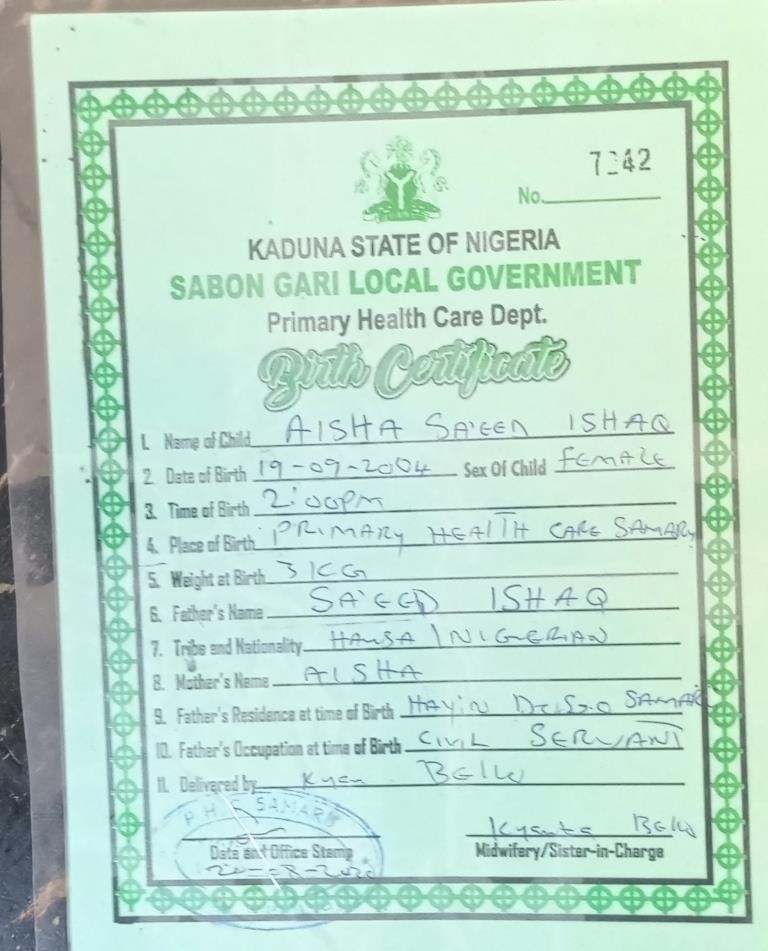 7242
No.
KADUNA STATE OF NIGERIA
SABON GARI LOCAL GOVERNMENT
Primary Health Care Dept.
Birth Certificate
1. Name of Child AISHA SA'EED ISHAQ
2. Date of Birth 19-09-2004 Sex Of Child FEMALE
3. Time of Birth 2:00PM
4. Place of Birth PRIMARY HEALTH CARE SAMARU
5. Weight at Birth 3KG
6. Father's Name SA'EED ISHAQ
7. Tribe and Nationality HAUSA / NIGERIAN
8. Mother's Name AISHA
9. Father's Residence at time of Birth HAYIN SAMARU
10. Father's Occupation at time of Birth CIVIL SERVANT
11. Delivered by Bello
P.H.C SAMARU
Date and Office Stamp
Bello
Midwifery/Sister-in-Charge